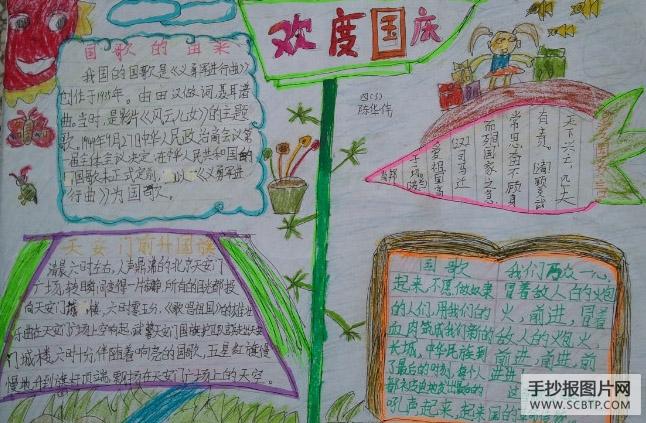 欢度国庆
四(5)
陈华伟
国歌的由来
我国的国歌是《义勇军进行曲》
创作于1935年。由田汉做词,聂耳谱
曲。当时,是影片《风云儿女》的主题
歌。1949年9月27日中华人民政治商会议第
一届全体会议决定,在中华人民共和国的
国歌未正式定制
《义勇军进
行曲》为国歌。
天下兴亡,匹夫
有责。
常思奋不顾身,
而殉国家之急
司马迁
爱祖国高
于一切。
天安门前升国旗
清晨六时左右,人声鼎沸的北京天安门
广场,转瞬间变得一片静,所有的目光都投
向天安门城楼,六时零五分,《歌唱祖国》的雄壮
乐曲在天安门广场上空响起,武警天安门国旗护卫队武走出天安
门城楼。六时十分伴随着响亮的国歌,五星红旗慢
慢地升到旗杆顶端,飘扬在天安门广场上的天空。
国歌
起来,不愿做奴隶
的人们,用我们的
血肉筑成我们新的
长城,中华民族到
了最后的时刻,每个人
吼声起来,起来
我们万众一心
冒着敌人的炮
火,前进,冒着
敌人的炮火,
前进,前进,前
进
手抄报图片网
WWW.SCBTP.COM